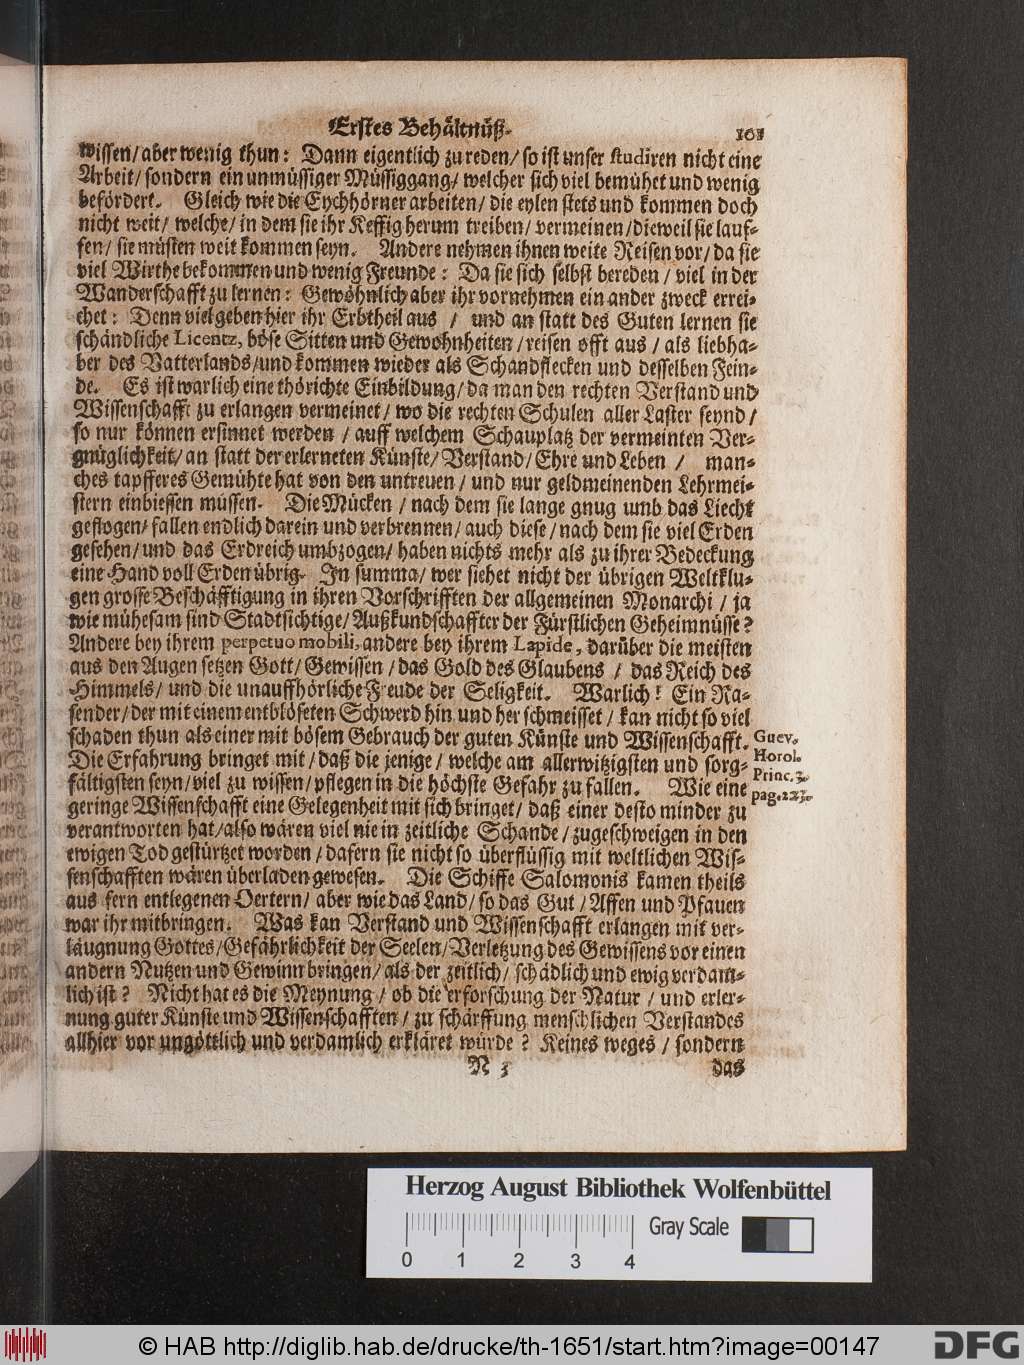 Erstes Behältnüß. 101
wissen/ aber wenig thun: Dann eigentlich zu reden/ so ist unser studiren nicht eine
Arbeit/ sondern ein unmüssiger Müssiggang/ welcher sich viel bemühet und wenig
befördert. Gleich wie die Eychhörner arbeiten/ die eylen stets und kommen doch
nicht weit/ welche/ in dem sie ihr Keffig herum treiben/ vermeinen/ dieweil sie lauf-
fen/ sie müsten weit kommen seyn. Andere nehmen ihnen weite Reisen vor/ da sie
viel Wirthe bekommen und wenig Freunde: Da sie sich selbst bereden/ viel in der
Wanderschafft zu lernen: Gewöhnlich aber ihr vornehmen ein ander zweck errei-
chet: Denn viel geben hier ihr Erbtheil aus / und an statt des Guten lernen sie
schändliche Licentz, böse Sitten und Gewohnheiten/ reisen offt aus / als liebha-
ber des Vatterlands/ und kommen wieder als Schandflecken und desselben Fein-
de. Es ist warlich eine thörichte Einbildung/ da man den rechten Verstand und
Wissenschafft zu erlangen vermeinet/ wo die rechten Schulen aller Laster seynd /
so nur können ersinnet werden / auff welchem Schauplatz der vermeinten Ver-
gnüglichkeit/ an statt der erlerneten Künste/ Verstand/ Ehre und Leben / man-
ches tapfferes Gemühte hat von den untreuen / und nur geldmeinenden Lehrmei-
stern einbiessen müssen. Die Mücken / nach dem sie lange gnug umb das Liecht
geflogen/ fallen endlich darein und verbrennen/ auch diese/ nach dem sie viel Erden
gesehen/ und das Erdreich umbzogen/ haben nichts mehr als zu ihrer Bedeckung
eine Hand voll Erden übrig. In summa/ wer siehet nicht der übrigen Weltklu-
gen grosse Beschäfftigung in ihren Vorschrifften der allgemeinen Monarchi / ja
wie mühesam sind Stadtsichtige/ Außkundschaffter der Fürstlichen Geheimnüsse?
Andere bey ihrem perpetuo mobili, andere bey ihrem Lapide, darüber die meisten
aus den Augen setzen Gott/ Gewissen / das Gold des Glaubens / das Reich des
Himmels/ und die unauffhörliche Freude der Seligkeit. Warlich! Ein Ra-
sender/ der mit einem entblöseten Schwerd hin und her schmeisset/ kan nicht so viel
schaden thun als einer mit bösem Gebrauch der guten Künste und Wissenschafft.
Die Erfahrung bringet mit/ daß die jenige/ welche am allerwitzigsten und sorg-
fältigsten seyn/ viel zu wissen/ pflegen in die höchste Gefahr zu fallen. Wie eine
geringe Wissenschafft eine Gelegenheit mit sich bringet/ daß einer desto minder zu
verantworten hat/ also wären viel nie in zeitliche Schande/ zugeschweigen in den
ewigen Tod gestürtzet worden / dafern sie nicht so überflüssig mit weltlichen Wis-
senschafften wären überladen gewesen. Die Schiffe Salomonis kamen theils
aus fern entlegenen Oertern/ aber wie das Land/ so das Gut / Affen und Pfauen
war ihr mitbringen. Was kan Verstand und Wissenschafft erlangen mit ver-
läugnung Gottes/ Gefährlichkeit der Seelen/ Verletzung des Gewissens vor einen
andern Nutzen und Gewinn bringen/ als der zeitlich/ schädlich und ewig verdam-
lich ist? Nicht hat es die Meynung / ob die erforschung der Natur / und erler-
nung guter Künste und Wissenschafften/ zu schärffung menschlichen Verstandes
allhier vor ungöttlich und verdamlich erkläret würde? Keines weges / sondern
N 3 das
Guev.
Horol.
Princ. 3.
pag. 223.
Herzog August Bibliothek Wolfenbüttel
Gray Scale
0 1 2 3 4
© HAB http://diglib.hab.de/drucke/th-1651/start.htm?image=00147
DFG